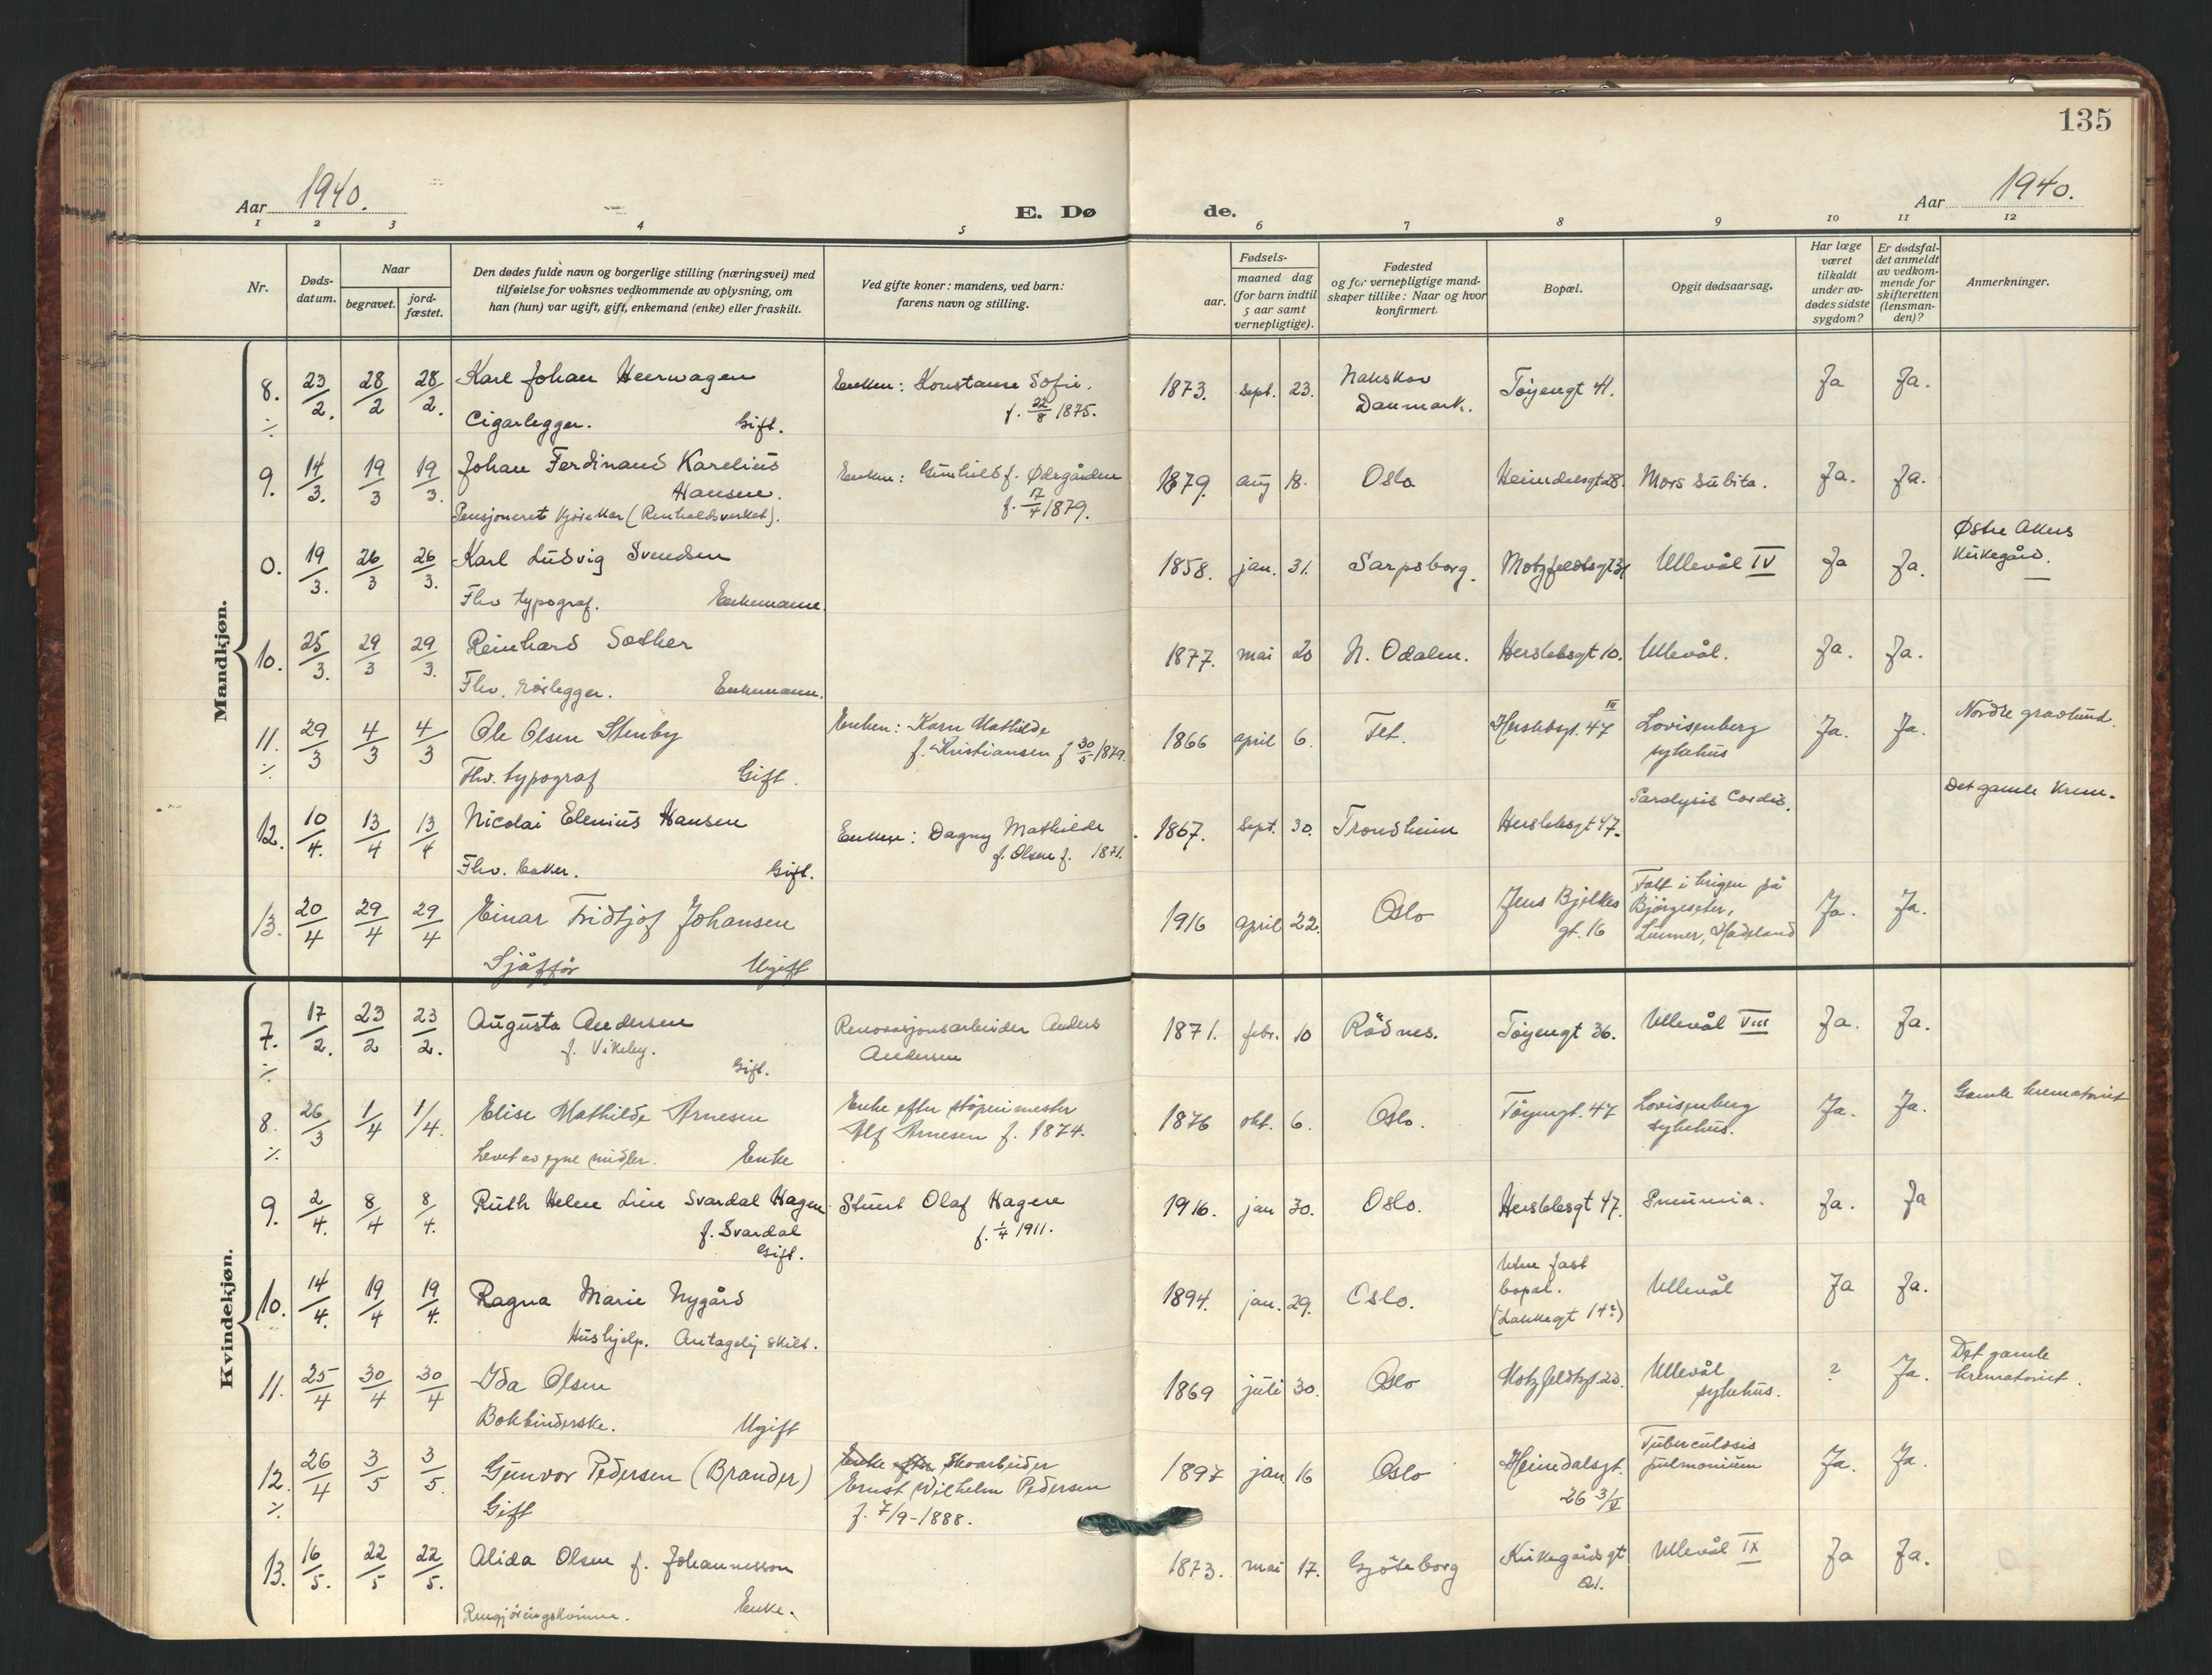 135
Aar 1940.
E. Dø
de.
Aar 1940.
1 2 3 4 5 6 7 8 9 10 11 12
Nr.
Døds-
datum.
Naar
begravet.
jord-
fæstet.
Den dødes fulde navn og borgerlige stilling (næringsvei) med
tilføielse for voksnes vedkommende av oplysning, om
han (hun) var ugift, gift, enkemand (enke) eller fraskilt.
Ved gifte koner: mandens, ved barn:
farens navn og stilling.
aar.
Fødsels-
maaned dag
(for barn indtil
5 aar samt
vernepligtige).
Fødested
og for vernepligtige mand-
skaper tillike: Naar og hvor
konfirmert.
Bopæl.
Opgit dødsaarsag.
Har læge
været
tilkaldt
under av-
dødes sidste
sygdom?
Er dødsfal-
det anmeldt
av vedkom-
mende for
skifteretten
(lensman-
den)?
Anmerkninger.
Mandkjøn.
8. 23/2. 28/2 28/2. Karl Johan Heerwagen Enken: Konstanse Sofie. 1873. sept. 23. Nakskov Tøyengt 41. Ja Ja.
f. 22/8 1875. Danmark.
Cigarlegger. Gift.
9. 14/3. 19/3 19/3. Johan Ferdinand Karelius Enken: Gunhild f. Ødegården 1879. aug 18. Oslo Heimdalsgt 28. Mors subita. Ja. Ja.
Hansen. f. 17/4 1879.
Pensjoneret kjørekar (Renholdsverket).
0. 19/3. 26/3 26/3. Karl Ludvig Svendsen 1858. jan. 31. Sarpsborg. Motzfeldtsgt 31 Ullevål IV Ja Ja. Østre Akers
kirkegård.
Flv typograf. Enkemann.
10. 25/3. 29/3 29/3. Reinhard Sæther 1877. mai 20 N. Odalen. Herslebsgt 10. Ullevål. Ja. Ja.
Flv. rørlegger. Enkemann.
11. 29/3 4/3 4/3 Ole Olsen Stenby Enken: Karn Mathilde 1866 april 6. Fet. Herslebsgt. 47 III Lovisenberg Ja. Ja. Nordre gravlund.
f. Kristiansen f 30/5 1879. sykehus
Fhv. typograf Gift.
12. 10/4. 13/4 13/4 Nicolai Elenius Hansen Enken: Dagny Mathilde 1867. Sept. 30. Trondheim Herslebsgt 47. Paralysis Cordis. Det gamle Krem.
f. Olsen f. 1871.
Flv. baker. Gift.
13. 20/4 29/4 29/4 Einar Fridtjof Johansen 1916 april 22. Oslo Jens Bjelkes Falt i krigen på Ja. Ja.
gt. 16 Bjørgeseter,
Lunner, Hadeland
Sjåffør Ugift
Kvindekjøn.
7. 17/2. 23/2 23/2. Augusta Andersen Renovasjonsarbeider Anders 1871. febr. 10 Rødnes. Tøyengt 36. Ullevål VIII Ja. Ja.
f. Vikeby. Andersen
Gift.
8. 26/3 1/4 1/4. Elise Mathilde Arnesen Enke efter støperimester 1876 okt. 6. Oslo. Tøyengt. 47 Lovisenberg Ja. Ja. Gamle krematoriet
Alf Arnesen f. 1874. sykehus.
Levet av egne midler. Enke
9. 2/4. 8/4 8/4. Ruth Helene Lien Svardal Hagen Stuert Olaf Hagen 1916. jan 30. Oslo. Herslebsgt 47. Pneumia. Ja. Ja
f. Svardal f. 1/4 1911.
Gift.
10. 14/4. 19/4 19/4. Ragna Marie Nygård 1894. jan. 29. Oslo. Uten fast Ullevål Ja Ja.
bopæl.
(Lakkegt 14?)
Hushjelp. Antagelig skilt.
11. 25/4 30/4 30/4 Ida Olsen 1869 juli 30. Oslo Motzfeldtsgt. 23. Ullevål ? Ja. Det gamle
sykehus. krematoriet.
Bokbinderske. Ugift
12. 26/4 3/5 3/5. Gunvor Pedersen (Brander) Enke efter Skoarbeider 1897 jan 16 Oslo Heimdalsgt. Tuberculosis Ja. Ja.
Ernst Wilhelm Pedersen 26 3/V pulmonium
Gift f. 7/9-1888.
13. 16/5. 22/5 22/5. Alida Olsen f. Johannesson 1873. mai 17. Gjøteborg Kirkegårdsgt Ullevål IX Ja Ja.
Rengjøringskvinne. Enke.